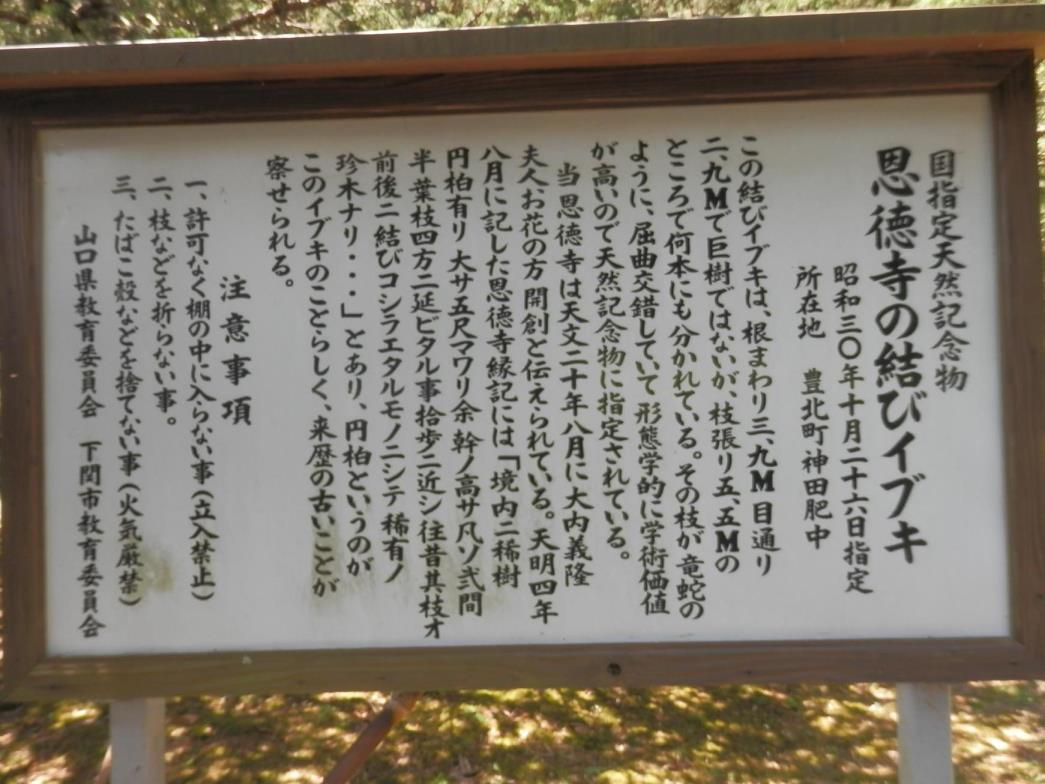 国指定天然記念物
恩徳寺の結びイブキ
昭和三〇年十月二十六日指定
所在地　豊北町神田肥中
この結びイブキは、根まわり三、九M目通り
二、九Mで巨樹ではないが、枝張り五、五Mの
ところで何本にも分かれている。その枝が竜蛇の
ように、屈曲交錯していて形態学的に学術価値
が高いので天然記念物に指定されている。
当恩徳寺は天文二十年八月に大内義隆
夫人お花の方開創と伝えられている。天明四年
八月に記した恩徳寺縁記には「境内ニ稀樹
円柏有リ大サ五尺マワリ余幹ノ高サ凡ソ弐間
半葉枝四方ニ延ビタル事拾歩ニ近シ往昔其枝オ
前後ニ結びコシラエタルモノニシテ稀有ノ
珍木ナリ・・・」とあり、円柏というのが
このイブキのことらしく、来歴の古いことが
察せられる。
注意事項
一、許可なく棚の中に入らない事（立入禁止）
二、枝などを折らない事。
三、たばこ殻などを捨てない事（火気厳禁）
山口県教育委員会　下関市教育委員会